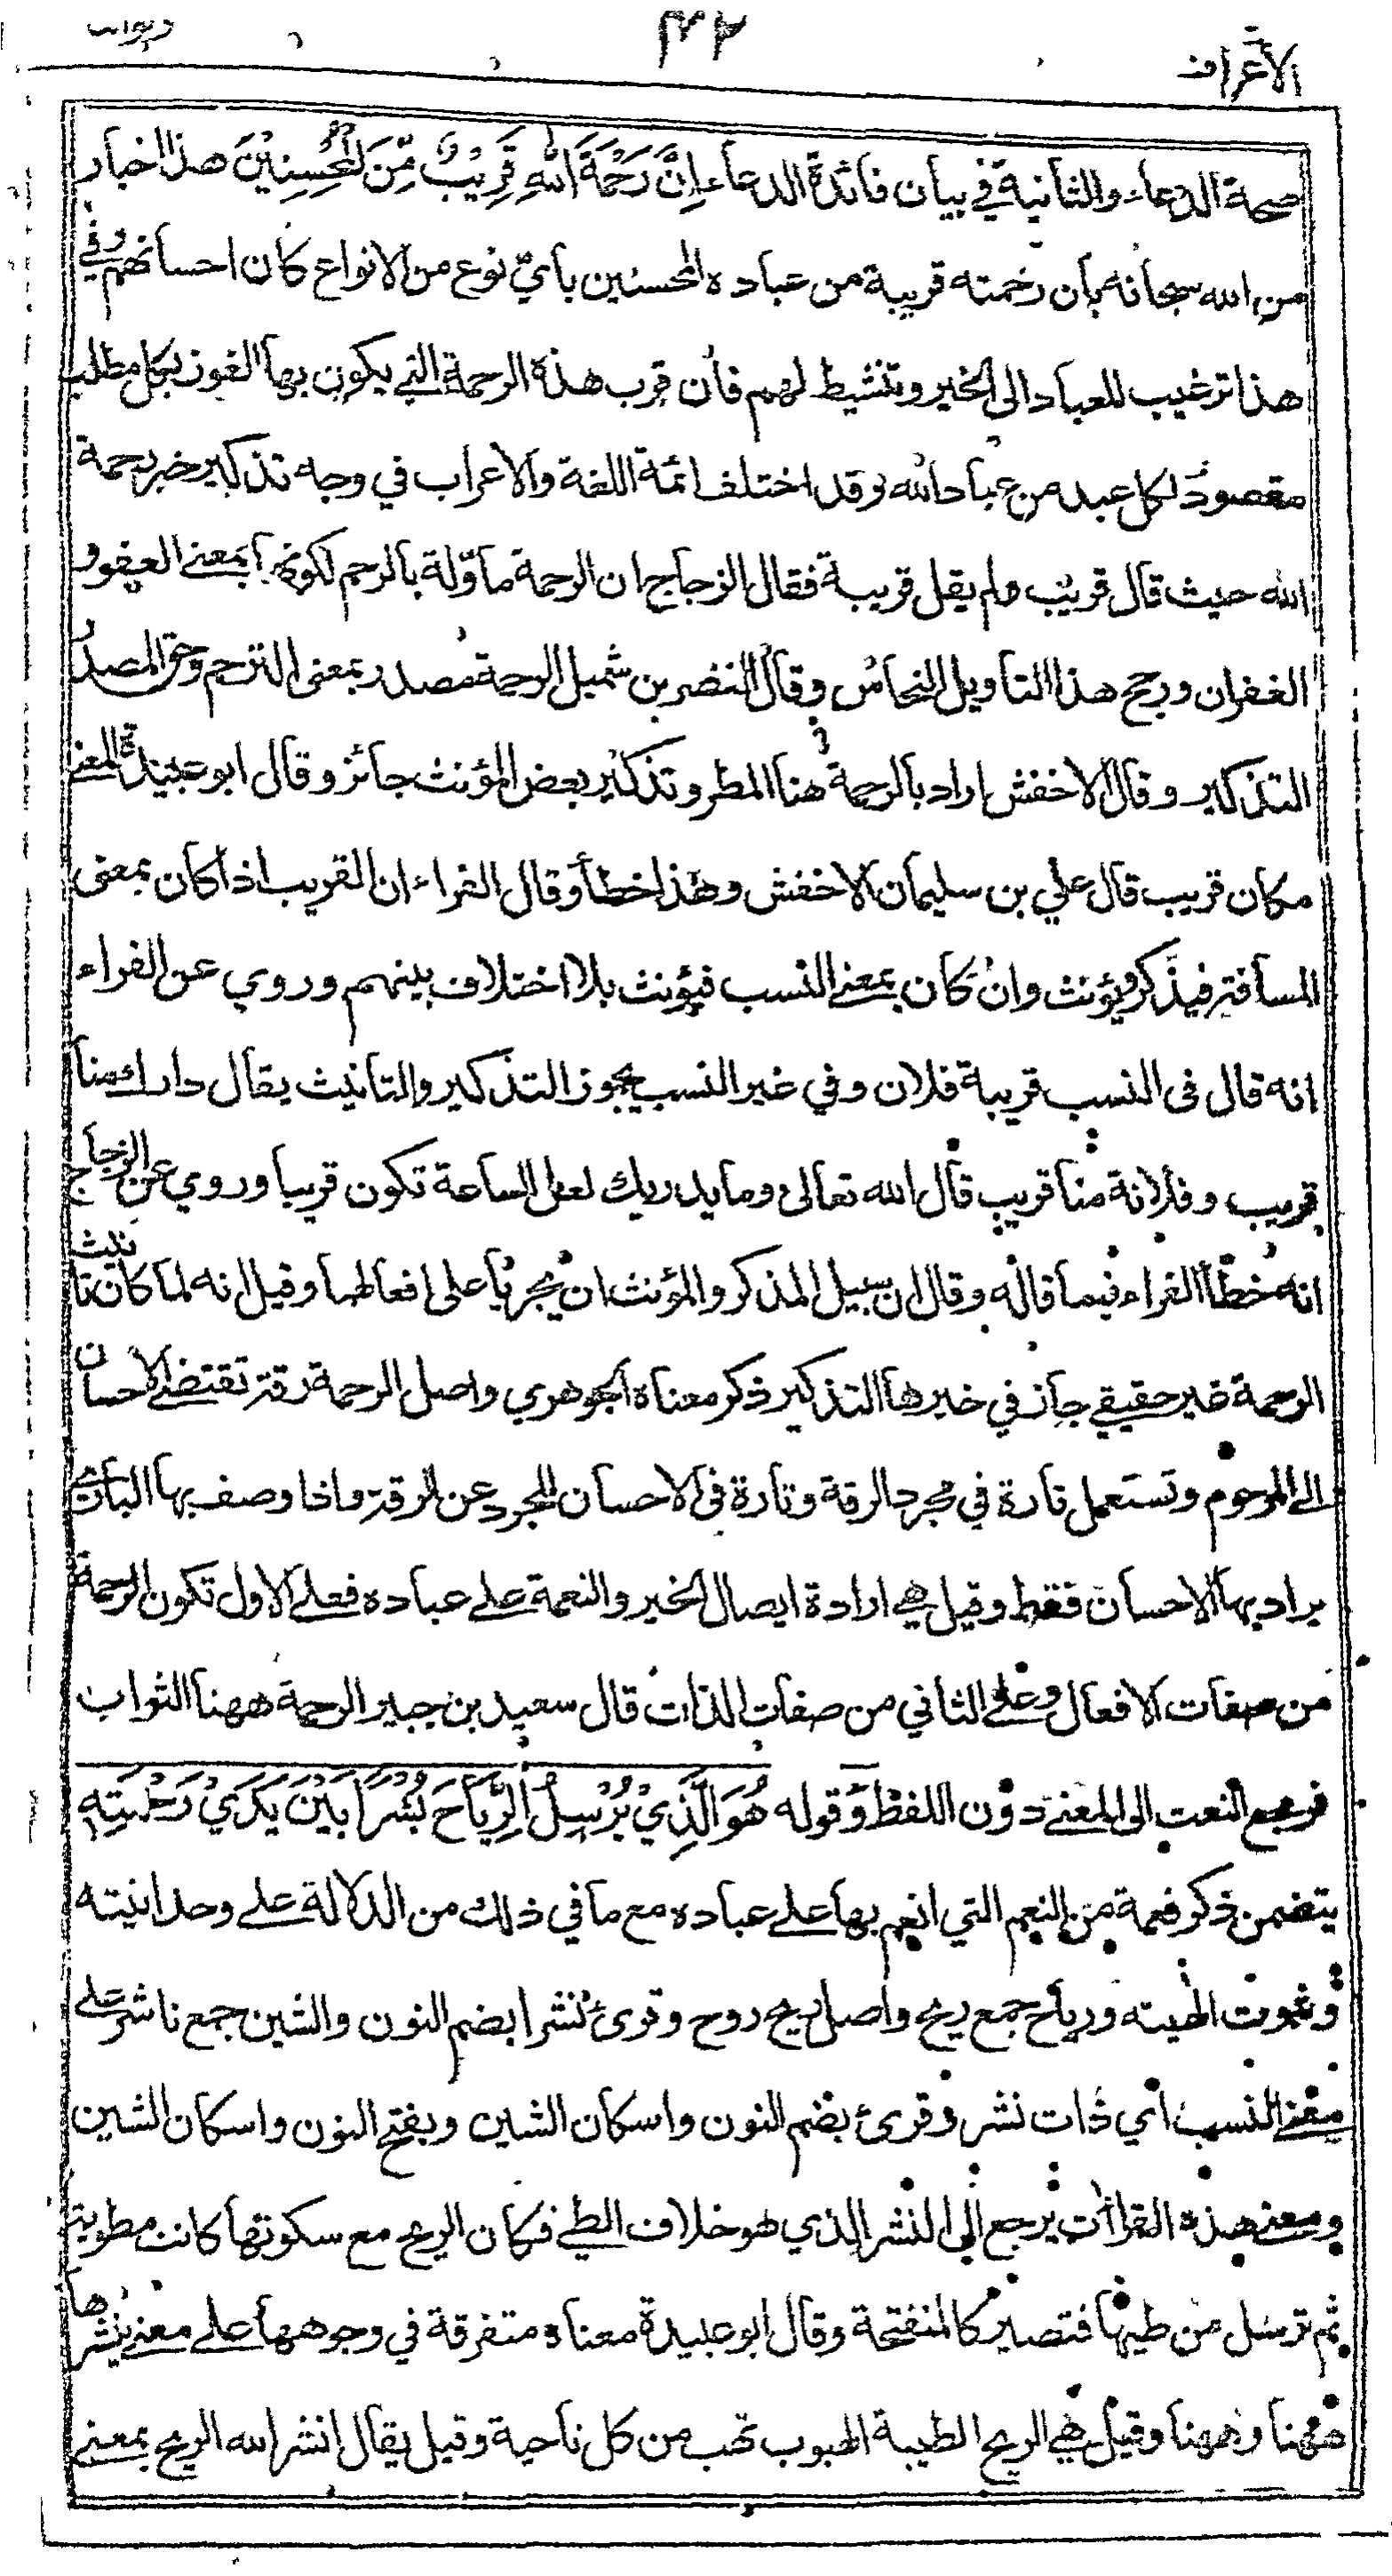 الأعراف
٤٣٢
ولواننا
صحة الدعاء والثانية في بيان فائدة الدعاء إِنَّ رَحْمَةَ اللهِ قَرِيْبٌ مِّنَ الْمُحْسِنِيْنَ هذا اخبار
من الله سبحانه بأن رحمته قريبة من عباده المحسنين بأيّ نوع من الانواع كان احسانهم وفي
هذا ترغيب للعباد الى الخير وتنشيط لهم فأن قرب هذه الرحمة التي يكون بها الفوز بكل مطلب
مقصود لكل عبد من عباد الله وقد اختلف ائمة اللغة والاعراب في وجه تذكير خبر رحمة
الله حيث قال قريب ولم يقل قريبة فقال الزجاج ان الرحمة مأوّلة بالرحم لكونها بمعنى العفو و
الغفران ورجح هذا التاويل النحاس وقال النضر بن شميل الرحمة مصدر بمعنى الترحم وحق المصدر
التذكير وقال الاخفش اراد بالرحمة هنا المطر وتذكير بعض المؤنث جائز وقال ابو عبيدة المعنى
مكان قريب قال علي بن سليمان الاخفش وهذا خطأ وقال الفراء ان القريب اذا كان بمعنى
المسافة فيذكر ويؤنث وان كان بمعنى النسب فيؤنث بلا اختلاف بينهم وروي عن الفراء
انه قال فى النسب قريبة فلان وفي غير النسب يجوز التذكير والتانيث يقال دارك منا
قريب وفلانة منا قريب قال الله تعالى وما يدريك لعل الساعة تكون قريبا وروي عن الزجاج
انه خطأ الفراء فيما قاله وقال ان سبيل المذكر والمؤنث ان يجريا على افعالهما وقيل انه لما كان تانيث
الرحمة غير حقيقي جاز في خبرها التذكير ذكر معناه الجوهري واصل الرحمة رقة تقتضي الاحسان
الى المرحوم وتستعمل تارة في مجرد الرقة وتارة فى الاحسان المجرد عن الرقة واذا وصف بها البارى
يراد بها الاحسان فقط وقيل هي ارادة ايصال الخير والنعمة على عباده فعلى الاول تكون الرحمة
من صفات الافعال وعلى الثاني من صفات الذات قال سعيد بن جبير الرحمة ههنا الثواب
فرجع النعت الى المعنى دون اللفظ وقوله هُوَ الَّذِيْ يُرْسِلُ الرِّيَاحَ بُشْرًا بَيْنَ يَدَيْ رَحْمَتِهِ
يتضمن ذكر نعمة من النعم التي انعم بها على عباده مع ما في ذلك من الدلالة على وحدانيته
وثبوت الهيته ورياح جمع ريح واصل ريح روح وقرئ نشرا بضم النون والشين جمع ناشر على
معنى النسب اي ذات نشر وقرئ بضم النون واسكان الشين وبفتح النون واسكان الشين
ومعنى هذه القراآت يرجع الى النشر الذي هو خلاف الطي فكان الريح مع سكونها كانت مطوية
ثم ترسل من طيها فتصير كالمنفتحة وقال ابو عبيدة معناه متفرقة في وجوهها على معنى ينشرها
ههنا وههنا وقيل هي الريح الطيبة الهبوب تهب من كل ناحية وقيل يقال انشر الله الريح بمعنى